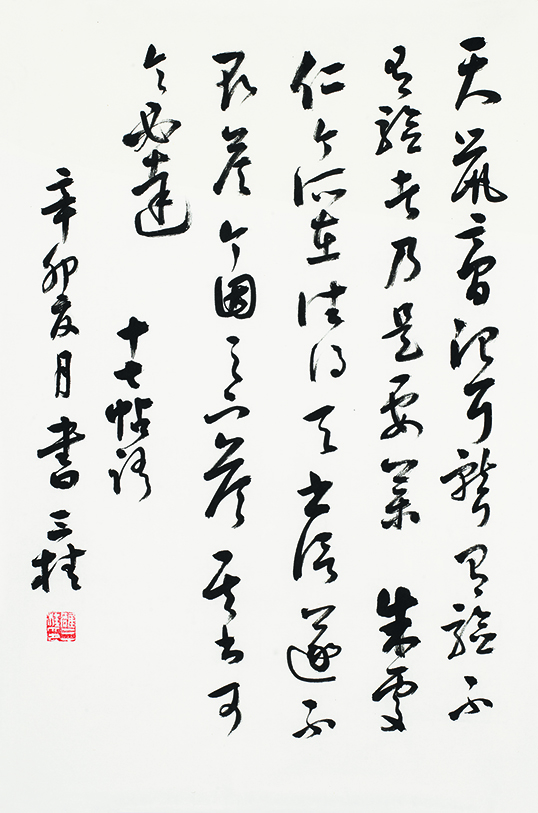 天鼠膏治耳聾有驗不
有驗者乃是要藥 朱處
仁今所在往得其書信遂不
取答今因足下答其書可
令必達
十七帖
辛卯夏月書 三桂